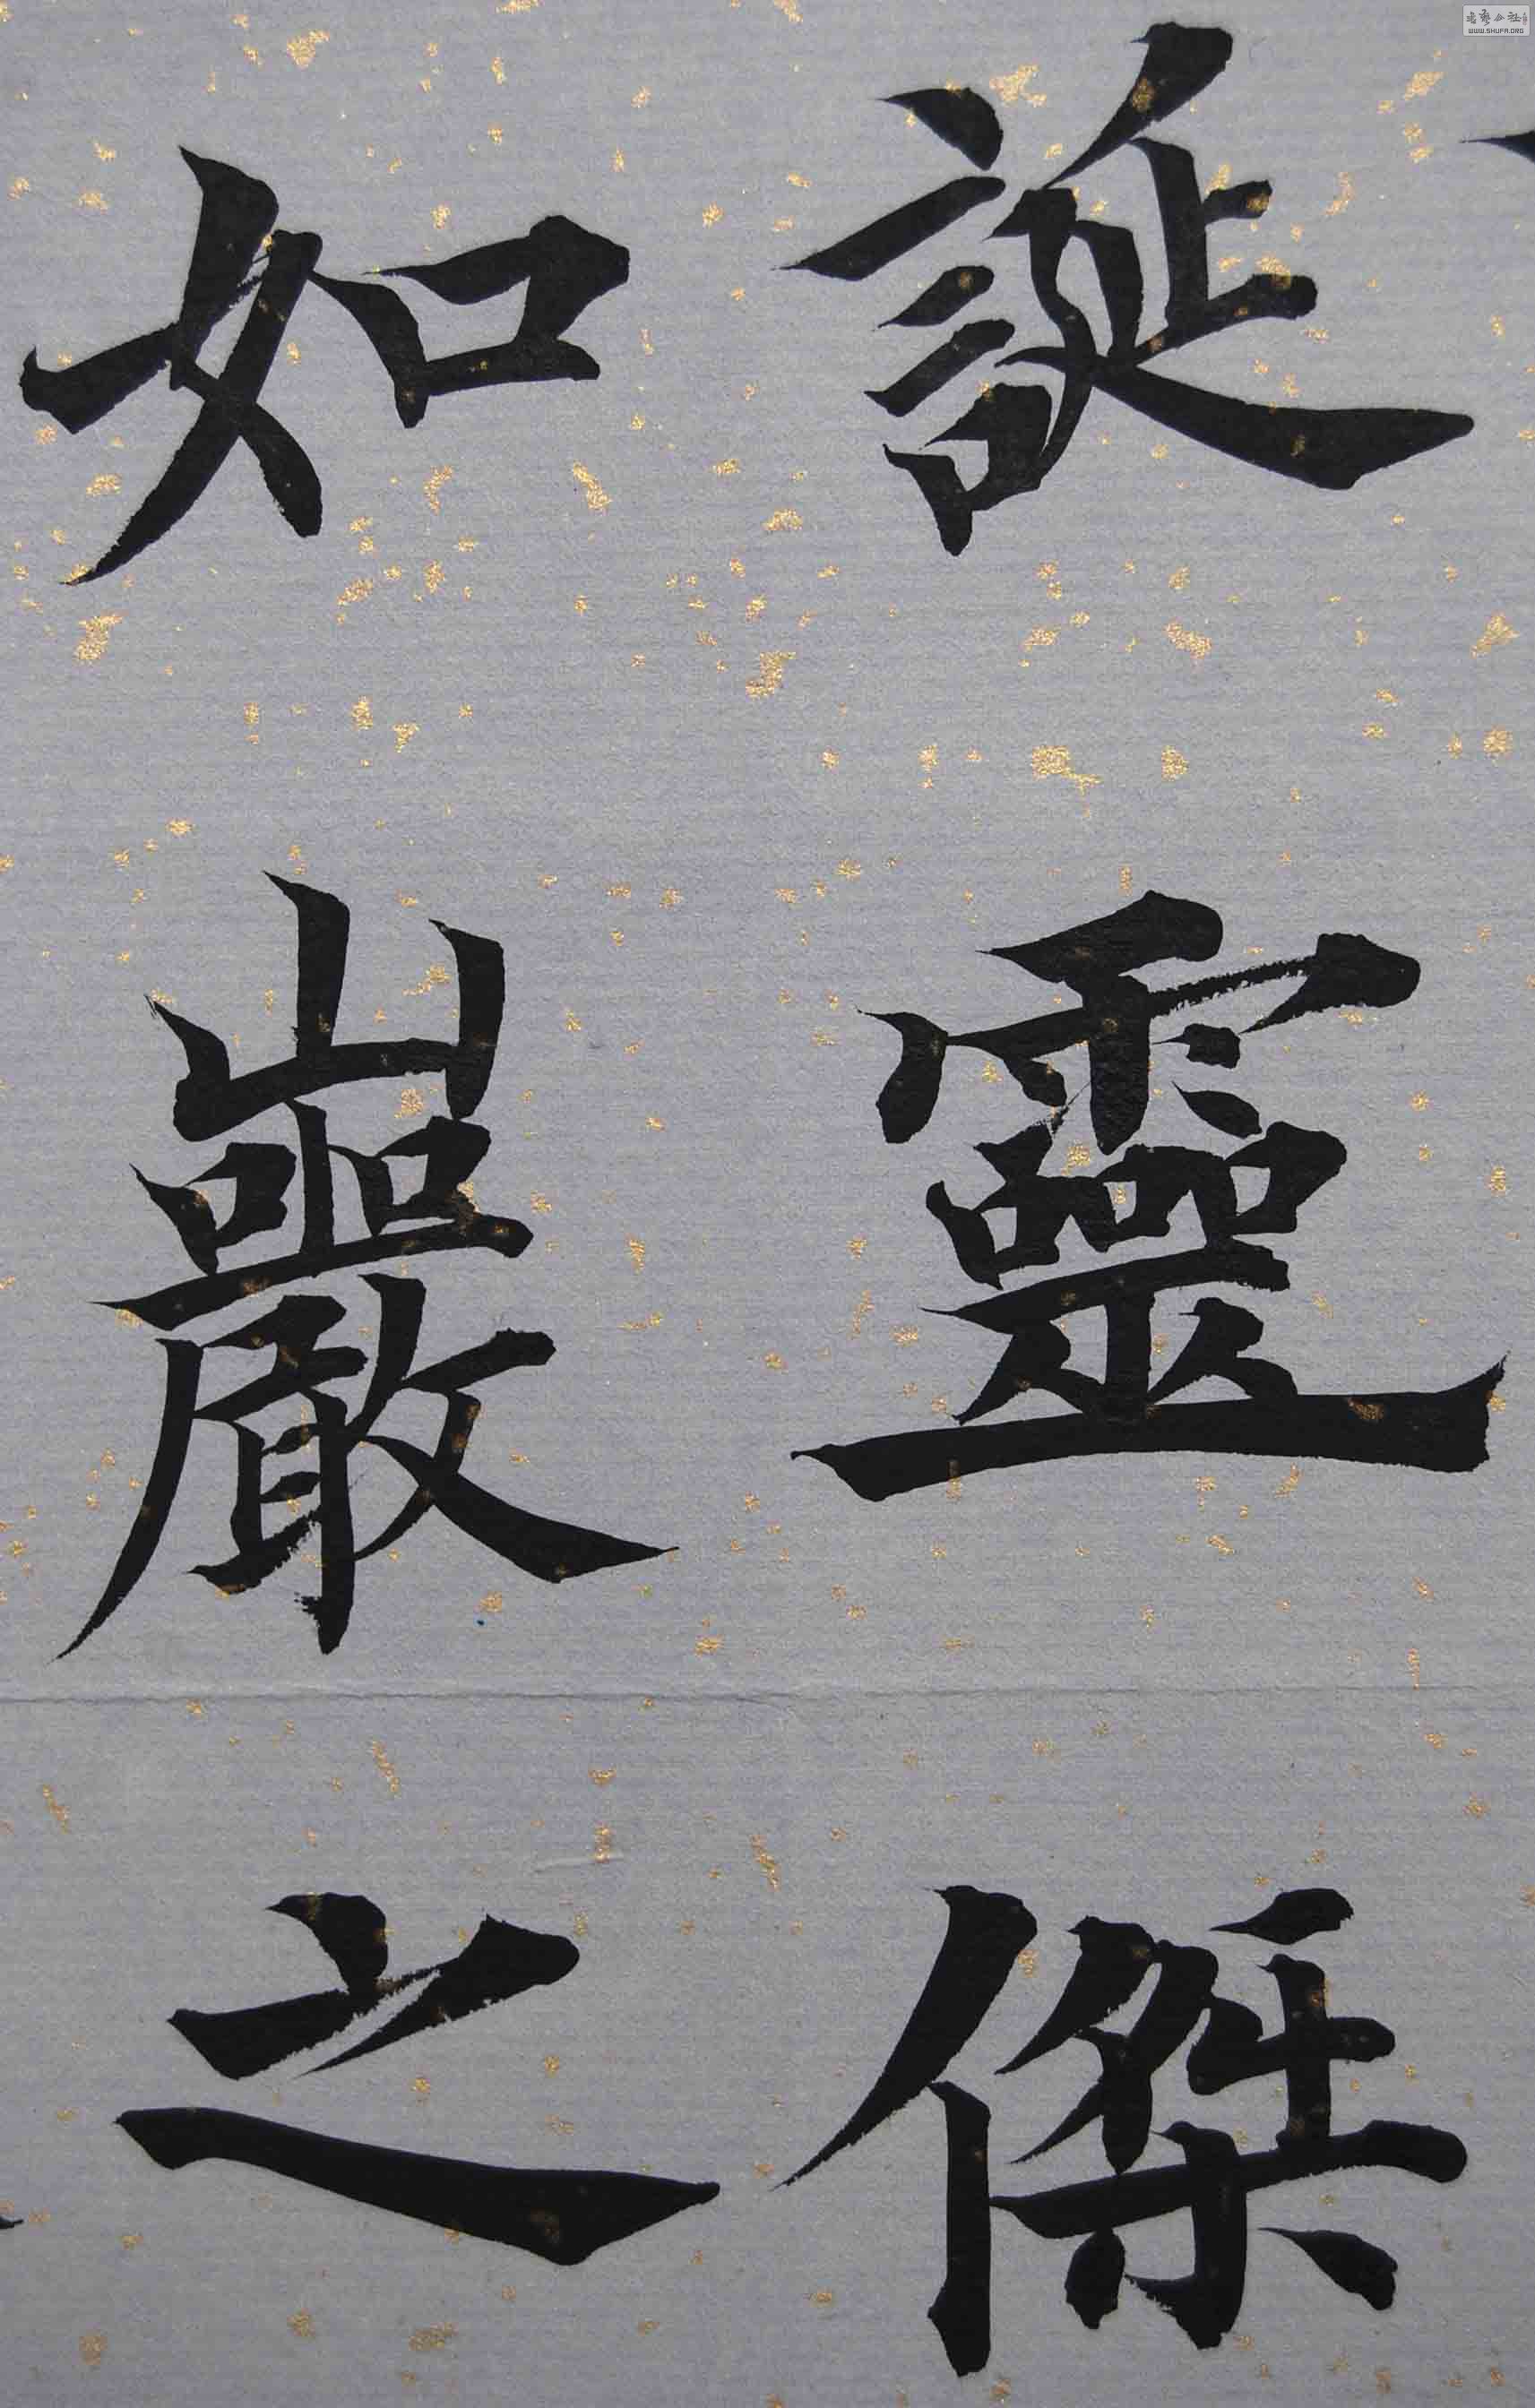 誕靈傑
如巖之
WWW.SHUFA.ORG